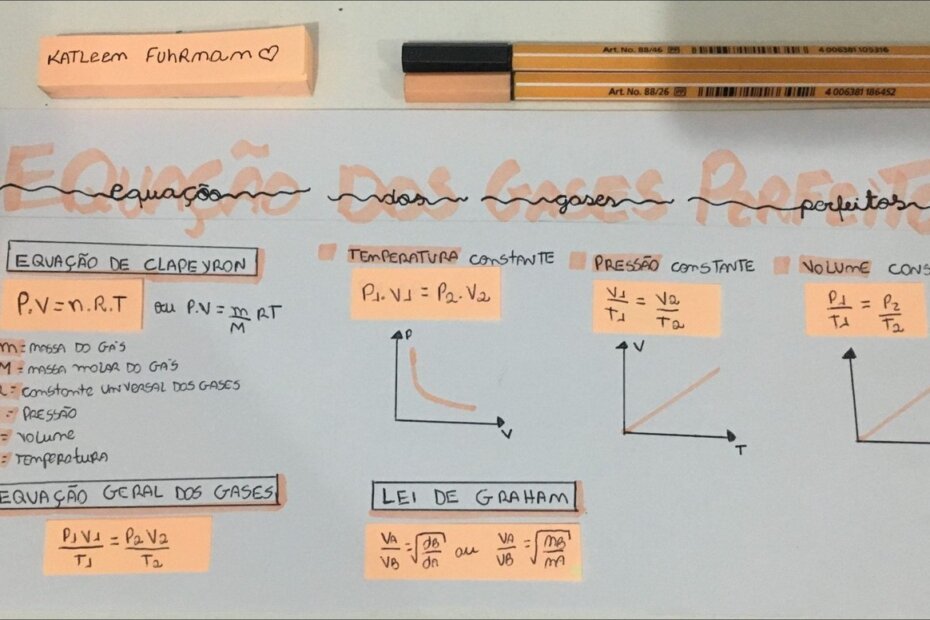 KATLEEM FUHRMAM
Art. No. 88/46 PP 4 006381 105316
Art. No. 88/26 PP 4 006381 186452
EQUAÇÃO DOS GASES PERFEITO
equação dos gases perfeitos
EQUAÇÃO DE CLAPEYRON
P.V = n.R.T ou P.V = m/M RT
m = massa do gás
M = massa molar do gás
R = constante universal dos gases
= PRESSÃO
= Volume
= Temperatura
TEMPERATURA CONSTANTE
P1.V1 = P2.V2
P
V
PRESSÃO CONSTANTE
V1/T1 = V2/T2
V
T
VOLUME CONS
P1/T1 = P2/T2
EQUAÇÃO GERAL DOS GASES
P1V1/T1 = P2V2/T2
LEI DE GRAHAM
VA/VB = √dB/dA ou VA/VB = √mB/mA